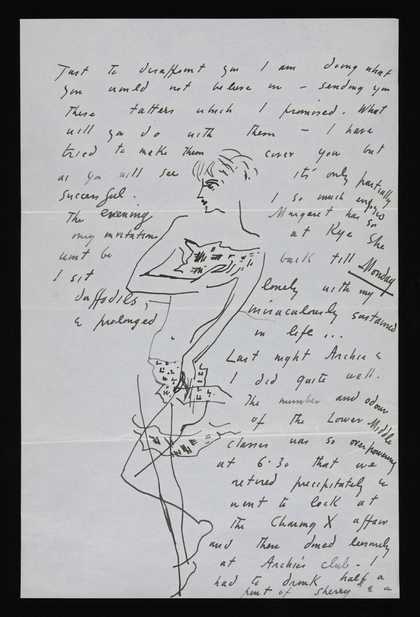 Just to disappoint you I am doing what
you would not believe in – sending you
These tatters which I promised. What
will you do with them – I have
tried to make them cover you but
as you will see it's only partially
successful. I so much enjoyed
The evening Margaret has
my invitation at Rye She
won't be back till Monday
I sit lonely with my
daffodils, miraculously sustained
& prolonged in life ...
Last night Archie &
I did quite well.
The number and odour
of the Lower Middle
classes was so overpowering
at 6.30 that we
retired precipitately &
went to look at
the Charing X affair
and then dined leisurely
at Archie's club. I
had to drink half a
pint of sherry & a